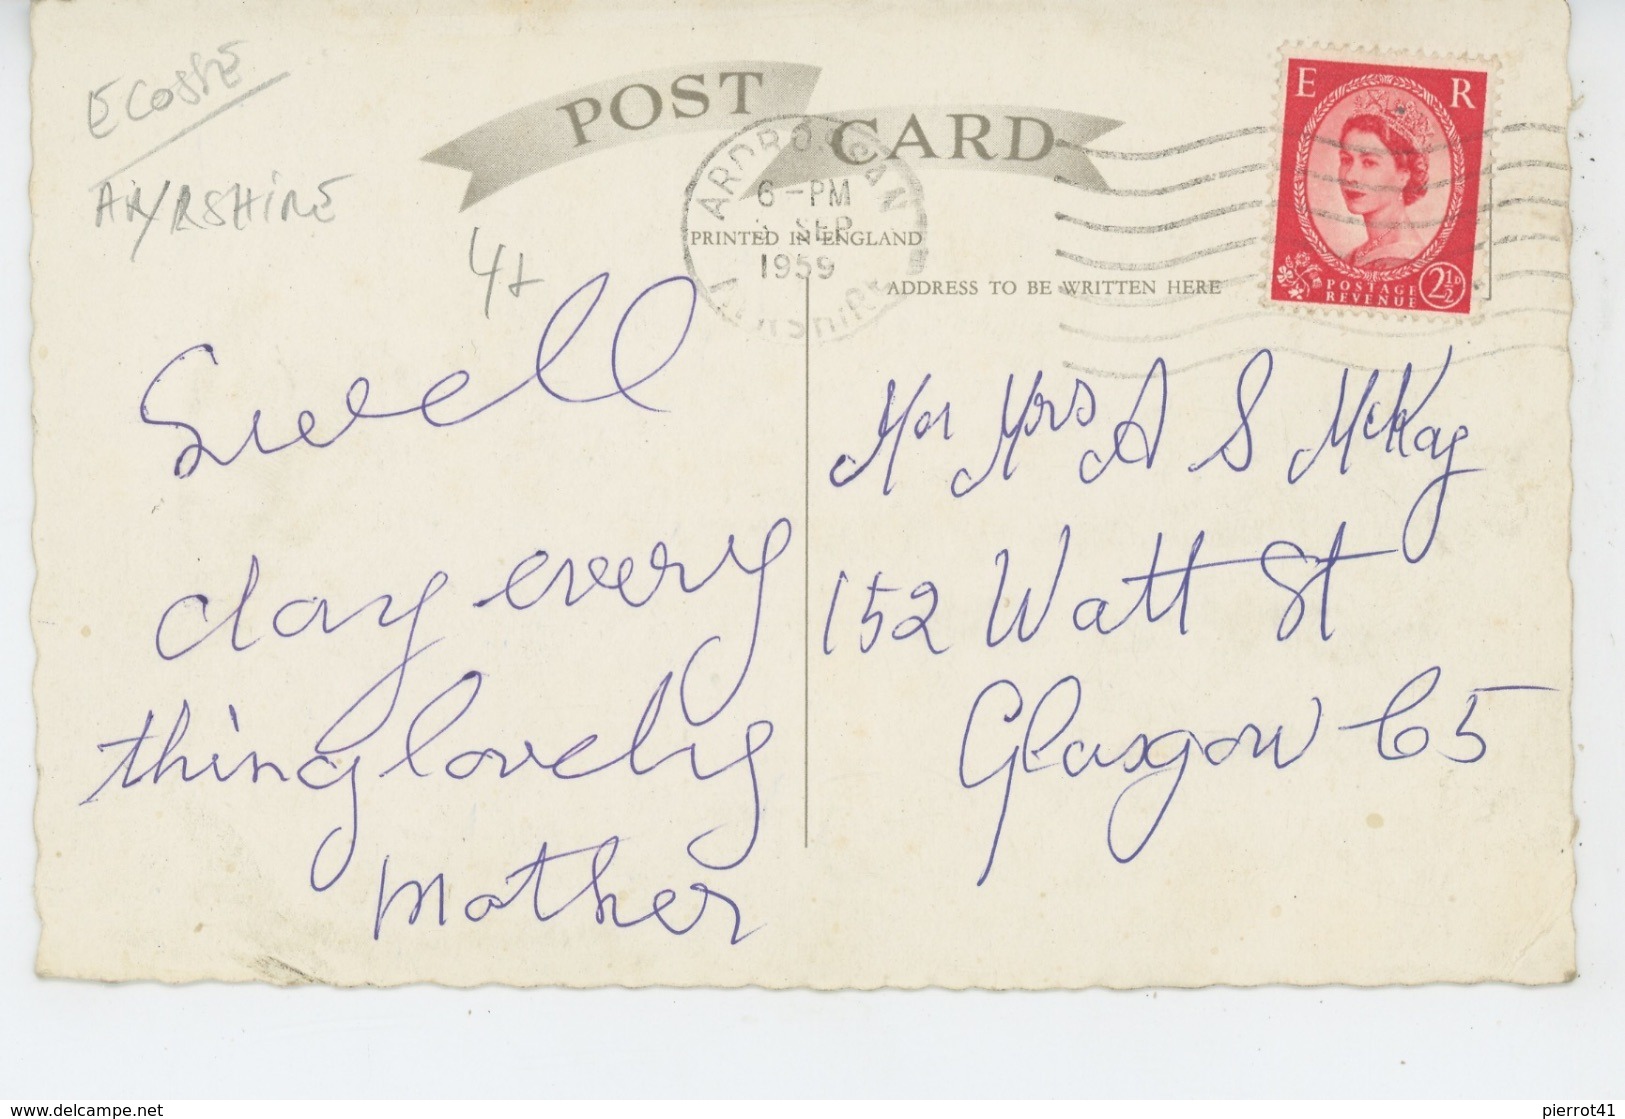 ECOSSE
AYRSHIRE
POST CARD
ARDROSSAN
6-PM
SEP
1959
AYRSHIRE
PRINTED IN ENGLAND
ADDRESS TO BE WRITTEN HERE
E R
POSTAGE
REVENUE
2½D
Swell
day every
thing lovely
Mother
Mr Mrs A S McKay
152 Watt St
Glasgow C5
www.delcampe.net
pierrot41